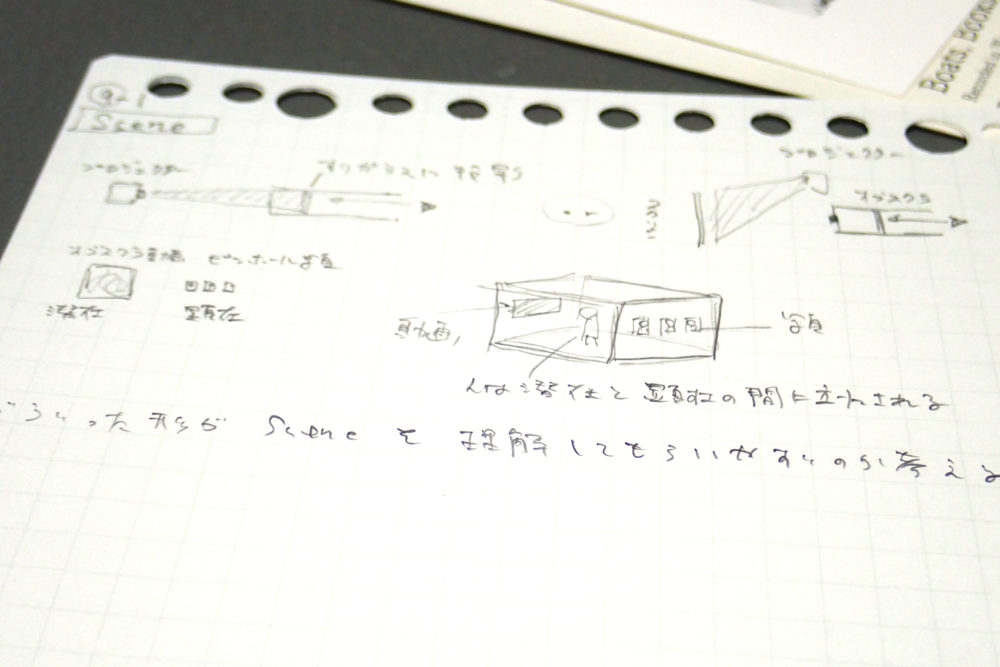 9-1
Scene
プロジェクター
すりガラスに投影
プロジェクター
オブスクラ
オブスクラ
ピンホール写真
潜在
顕在
写真
人は潜在と顕在の間に立たされる
どういった形が Scene を理解してもらいやすいのか考える
Boats, Books,